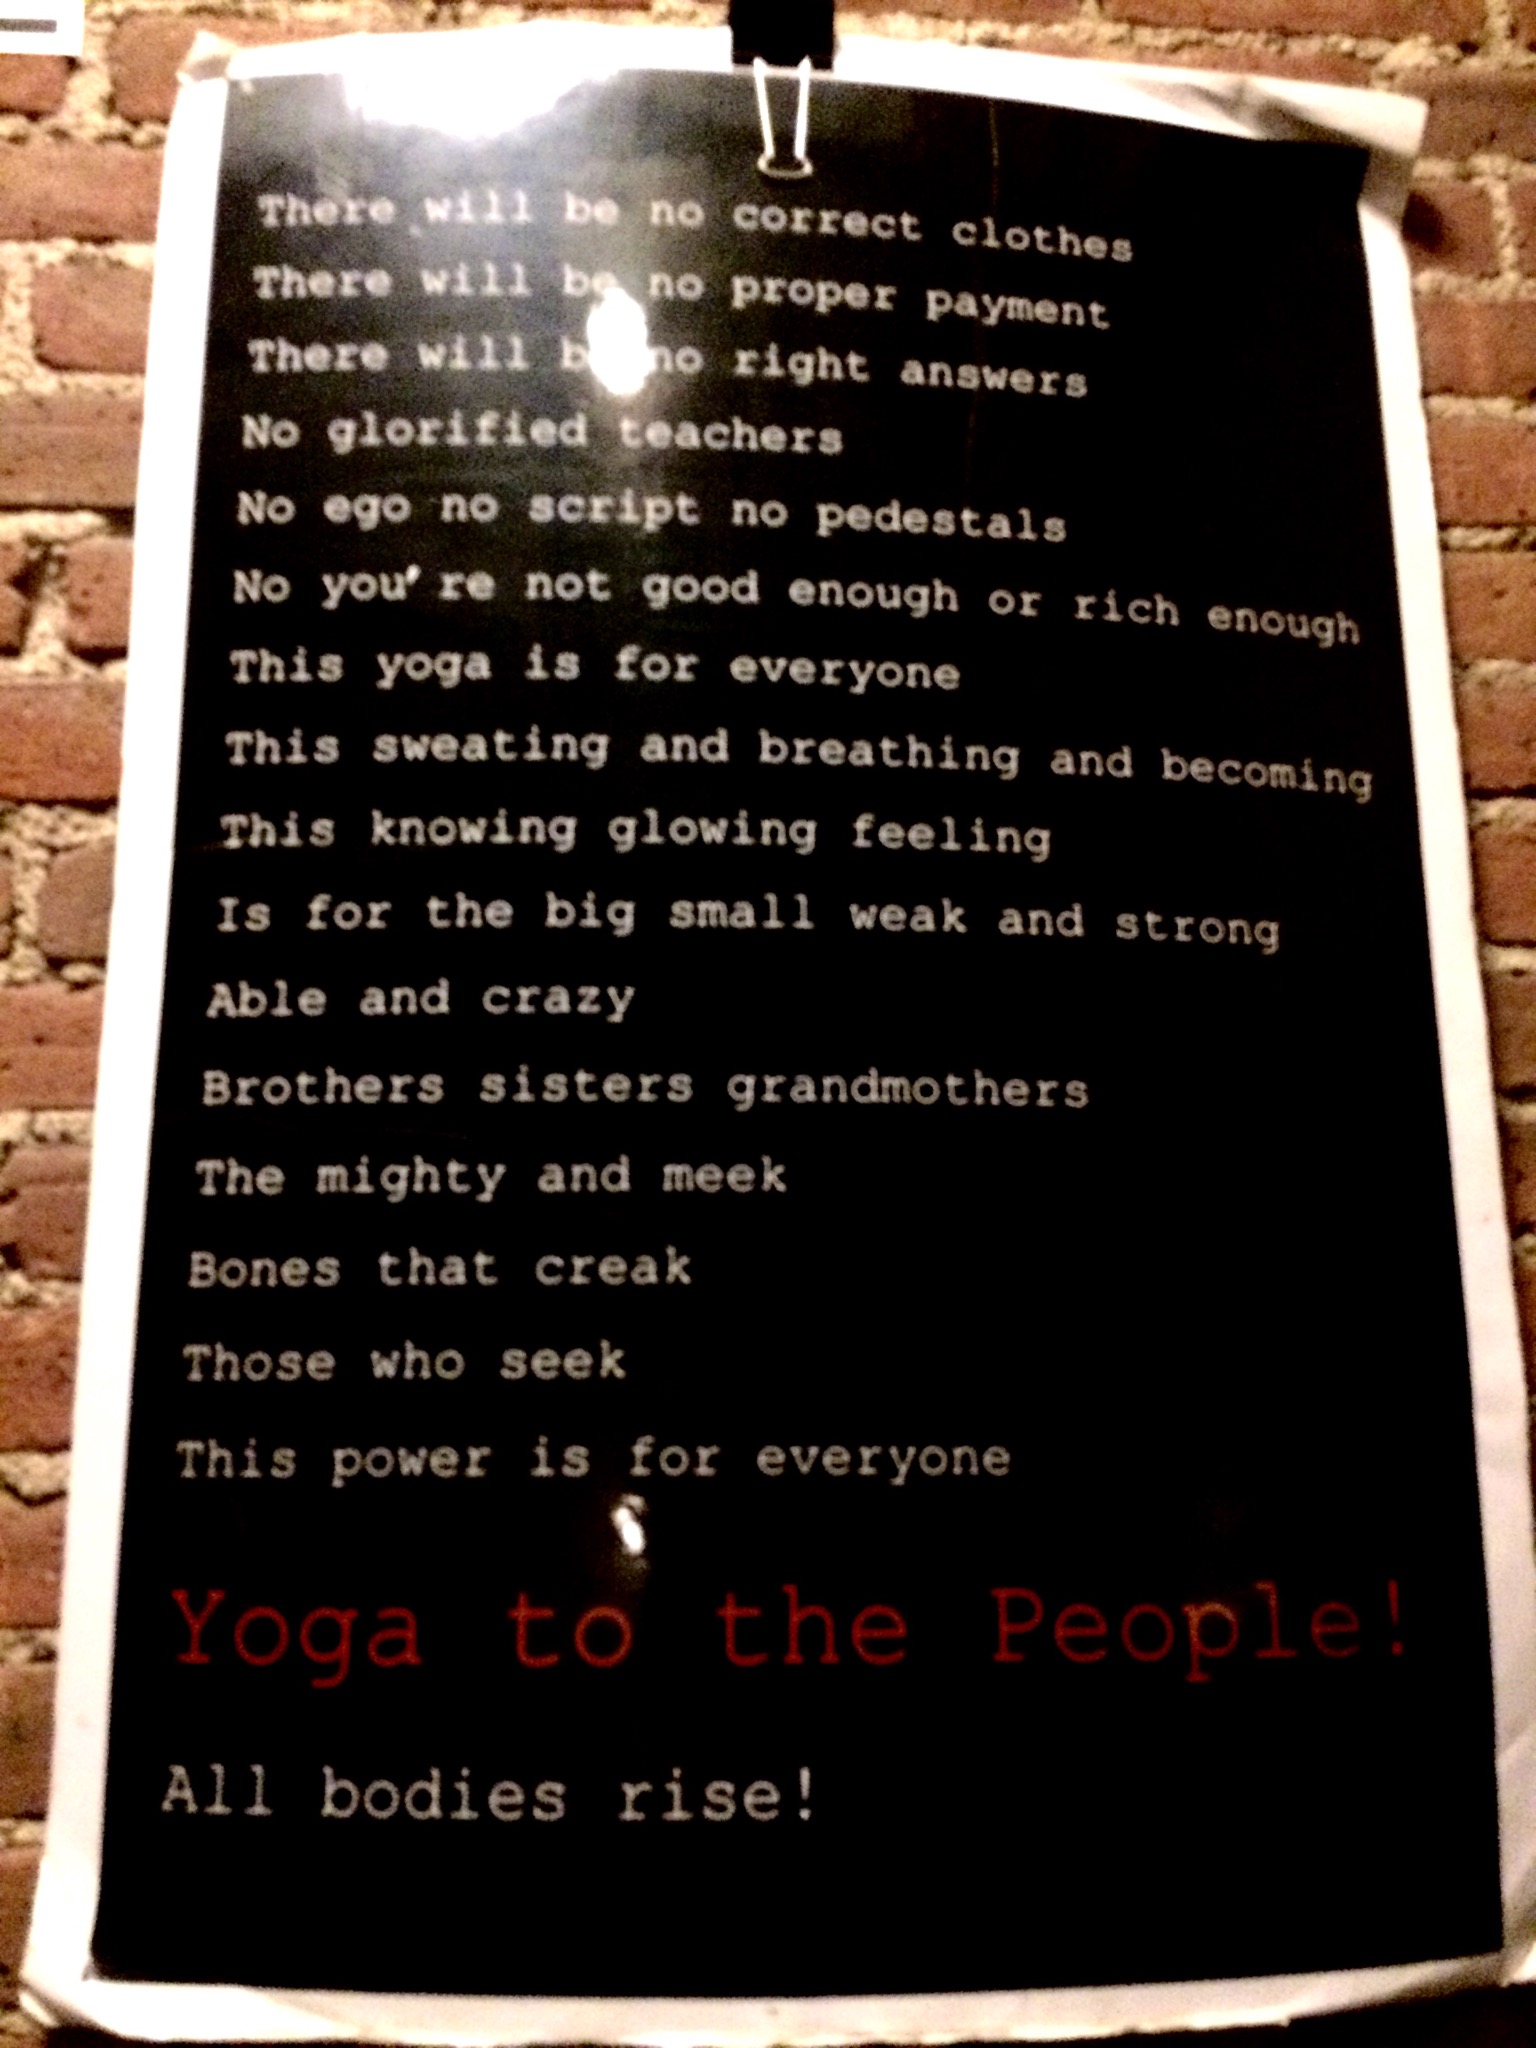 There will be no correct clothes
There will be no proper payment
There will be no right answers
No glorified teachers
No ego no script no pedestals
No you're not good enough or rich enough
This yoga is for everyone
This sweating and breathing and becoming
This knowing glowing feeling
Is for the big small weak and strong
Able and crazy
Brothers sisters grandmothers
The mighty and meek
Bones that creak
Those who seek
This power is for everyone
Yoga to the People!
All bodies rise!